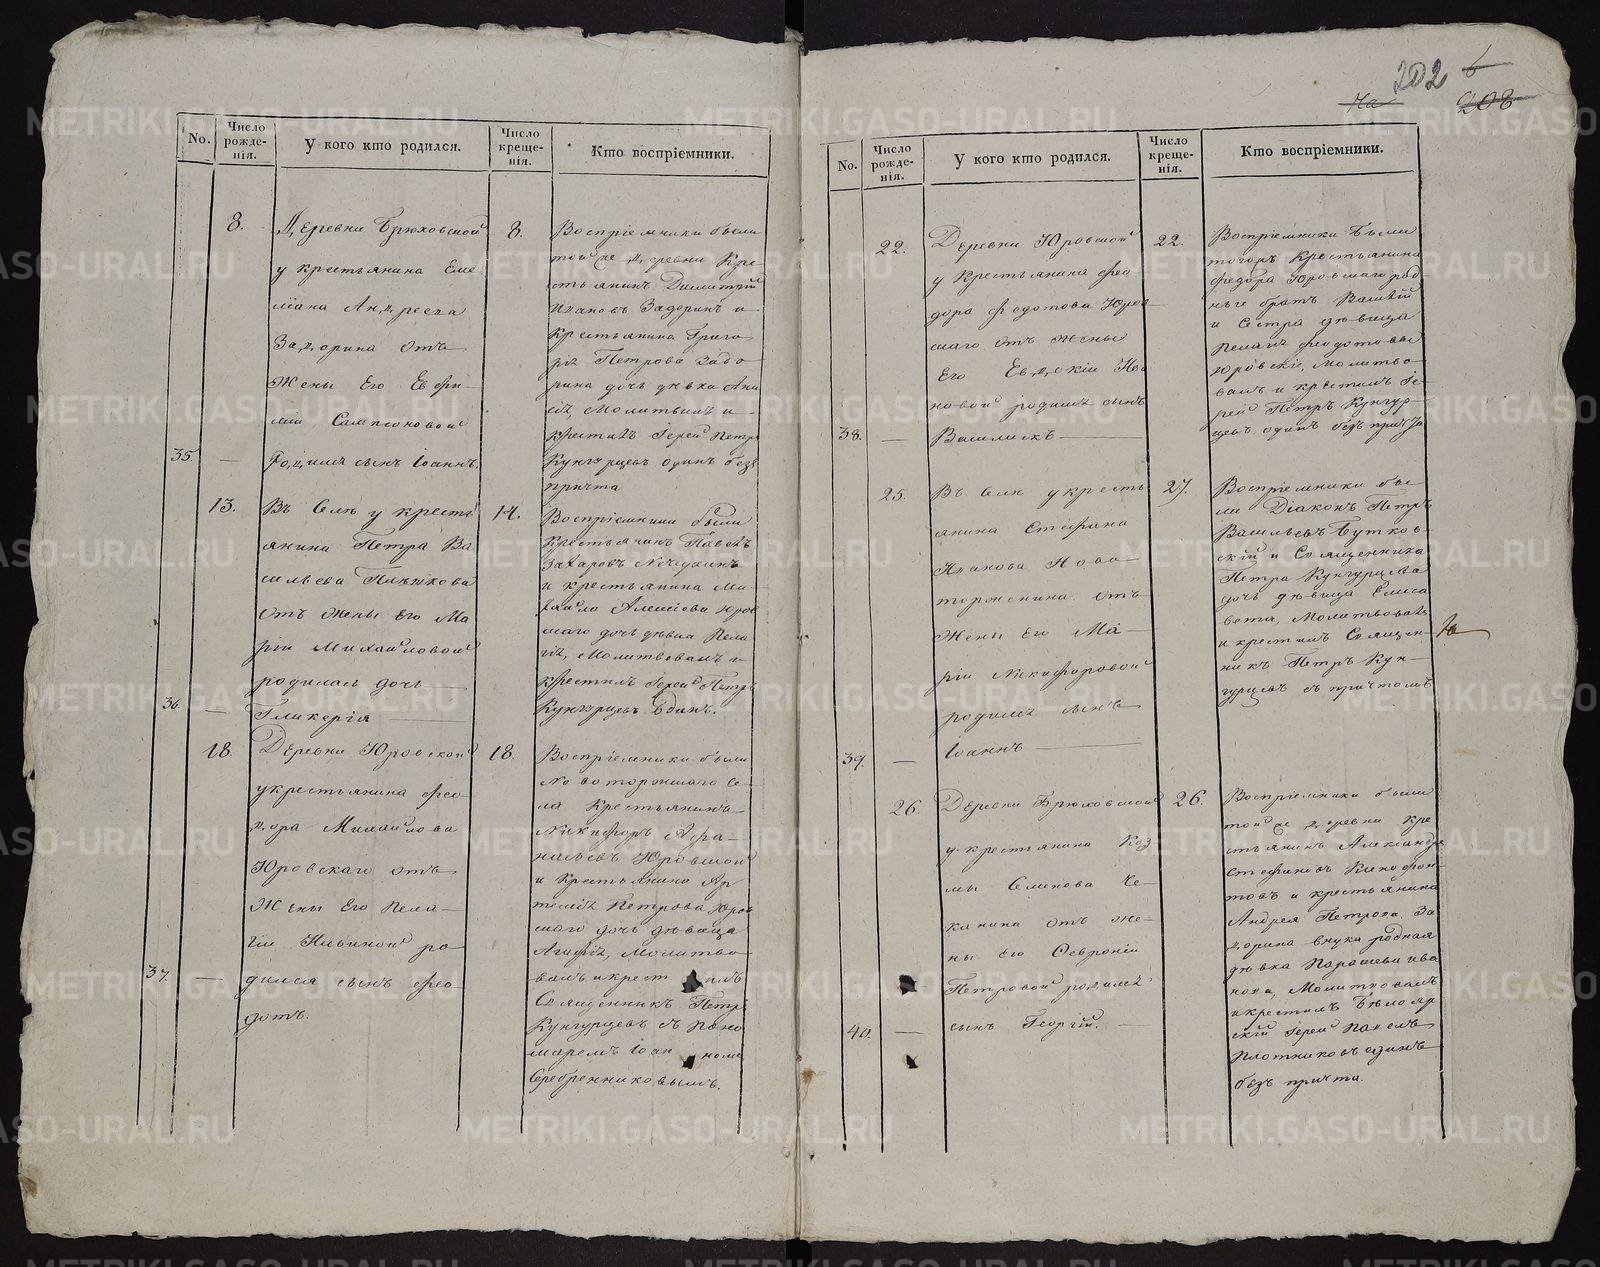 202 6
На 208
No.
Число рожде-нія.
У кого кто родился.
Число креще-нія.
Кто воспріемники.
8.
Деревни Брюховской
у крестьянина Еме
ліана Андреева
Задорина отъ
Жены Его Евфи-
міи Сампсоновой
35. — родился сынъ Іоаннъ.
8.
Воспріемники были
той же деревни Кре
стьянинъ Димитрій
Ивановъ Задоринъ и
Крестьянина Григо
рія Петрова Задо
рина дочь дѣвка
Молитвилъ и
крестилъ Іерей Петръ
Кунгурцевъ одинъ безъ
причта
13.
Въ Селѣ у кресть
янина Петра Ва
сильева
отъ жены Его Ма
ріи Михайловой
родилась дочь
36. — Гликерія
14.
Воспріемники были
Крестьянинъ Павелъ
Захаровъ
и крестьянина Ми-
хаила Алексіева Юров
скаго дочь дѣвка Пела
гія, Молитвовалъ и
крестилъ Іерей Петръ
Кунгурцевъ Одинъ.
18.
Деревни Юровской
у крестьянина Фео
дора Михайлова
Юровскаго отъ
Жены Его Пела-
гіи Ильиной ро
37. — дился сынъ Фео
дотъ.
18.
Воспріемники были
Новоторжскаго Се-
ла Крестьянинъ
Никифоръ Афа-
насьевъ Юровской
и Крестьянина Ар
темія Петрова Юров
скаго дочь дѣвица
Агафія, Молитво
валъ и крестилъ
Священникъ Петръ
Кунгурцевъ съ Поно
маремъ Іоанномъ
Серебренниковымъ.
No.
Число рожде-нія.
У кого кто родился.
Число креще-нія.
Кто воспріемники.
22.
Деревни Юровской
у Крестьянина Фео
дора Федотова Юров
скаго отъ жены
Его Евдокіи
новой родился сынъ
38. — Василискъ
22.
Воспріемники Были
тогожъ Крестьянина
Федора Юровскаго род
ные братъ Василій
и Сестра дѣвица
Пелагія Феодотовы
Юровскіе, Молитво
валъ и крестилъ Іе-
рей Петръ Кунгур-
цевъ одинъ безъ причта
25.
Въ Селѣ у кресть
янина Стефана
Иванова Ново-
торженина отъ
Жены Его Ма-
ріи Никифоровой
родился сынъ
39. — Іоаннъ
27.
Воспріемники бы
ли Діаконъ Петръ
Васильевъ Бутков-
скій и Священника
Петра Кунгурцева
дочь дѣвица Елиса
вета, Молитвовалъ
и крестилъ Священ-
никъ Петръ Кун-
гурцевъ съ причтомъ
26.
Деревни Брюховской
у крестьянина Коз
мы Семенова Че-
канина отъ же-
ны Его Февроніи
Петровой родился
40. — сынъ Георгій.
26.
Воспріемники были
той же деревни кре
стьянинъ Александръ
Стефановъ Ксенофон-
товъ и крестьянина
Андрея Петрова За
дорина внука родная
дѣвка Парасковья Ива
нова, Молитвовалъ
и крестилъ Бѣлояр
скій Іерей Павелъ
Плотниковъ одинъ
безъ причта.